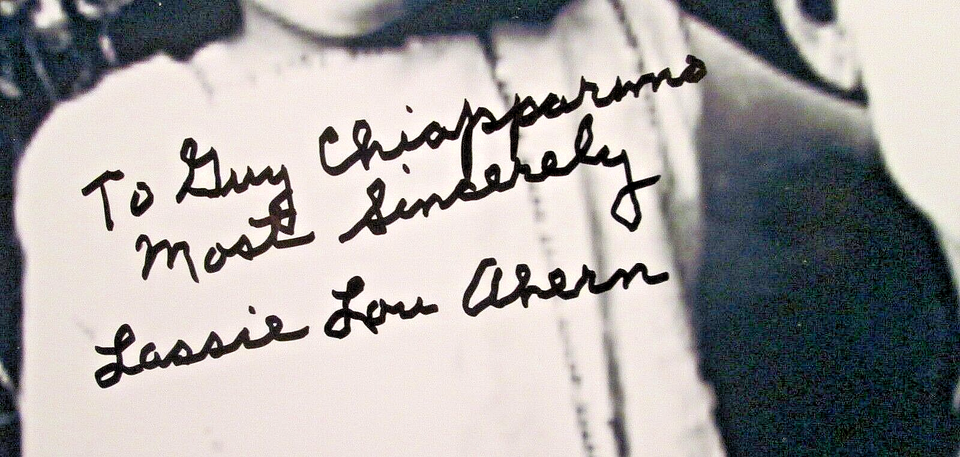 To Guy Chiapparino
Most Sincerely
Lassie Lou Ahern